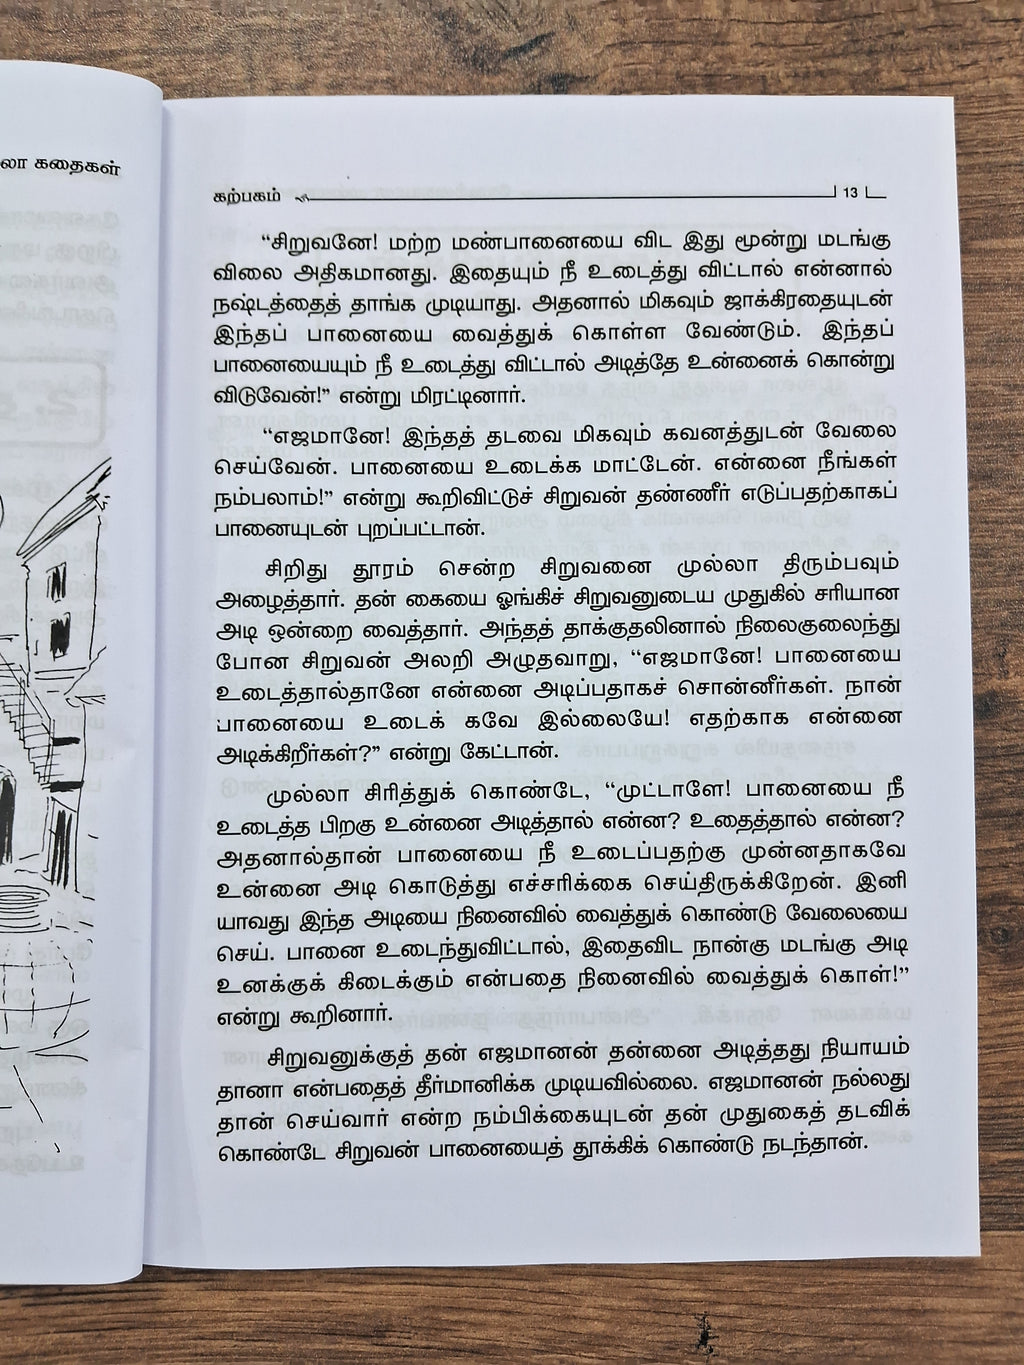 லா கதைகள்
கற்பகம் 13
“சிறுவனே! மற்ற மண்பானையை விட இது மூன்று மடங்கு
விலை அதிகமானது. இதையும் நீ உடைத்து விட்டால் என்னால்
நஷ்டத்தைத் தாங்க முடியாது. அதனால் மிகவும் ஜாக்கிரதையுடன்
இந்தப் பானையை வைத்துக் கொள்ள வேண்டும். இந்தப்
பானையையும் நீ உடைத்து விட்டால் அடித்தே உன்னைக் கொன்று
விடுவேன்!” என்று மிரட்டினார்.
“எஜமானே! இந்தத் தடவை மிகவும் கவனத்துடன் வேலை
செய்வேன். பானையை உடைக்க மாட்டேன். என்னை நீங்கள்
நம்பலாம்!” என்று கூறிவிட்டுச் சிறுவன் தண்ணீர் எடுப்பதற்காகப்
பானையுடன் புறப்பட்டான்.
சிறிது தூரம் சென்ற சிறுவனை முல்லா திரும்பவும்
அழைத்தார். தன் கையை ஓங்கிச் சிறுவனுடைய முதுகில் சரியான
அடி ஒன்றை வைத்தார். அந்தத் தாக்குதலினால் நிலைகுலைந்து
போன சிறுவன் அலறி அழுதவாறு, “எஜமானே! பானையை
உடைத்தால்தானே என்னை அடிப்பதாகச் சொன்னீர்கள். நான்
பானையை உடைக் கவே இல்லையே! எதற்காக என்னை
அடிக்கிறீர்கள்?” என்று கேட்டான்.
முல்லா சிரித்துக் கொண்டே, “முட்டாளே! பானையை நீ
உடைத்த பிறகு உன்னை அடித்தால் என்ன? உதைத்தால் என்ன?
அதனால்தான் பானையை நீ உடைப்பதற்கு முன்னதாகவே
உன்னை அடி கொடுத்து எச்சரிக்கை செய்திருக்கிறேன். இனி
யாவது இந்த அடியை நினைவில் வைத்துக் கொண்டு வேலையை
செய். பானை உடைந்துவிட்டால், இதைவிட நான்கு மடங்கு அடி
உனக்குக் கிடைக்கும் என்பதை நினைவில் வைத்துக் கொள்!”
என்று கூறினார்.
சிறுவனுக்குத் தன் எஜமானன் தன்னை அடித்தது நியாயம்
தானா என்பதைத் தீர்மானிக்க முடியவில்லை. எஜமானன் நல்லது
தான் செய்வார் என்ற நம்பிக்கையுடன் தன் முதுகைத் தடவிக்
கொண்டே சிறுவன் பானையைத் தூக்கிக் கொண்டு நடந்தான்.